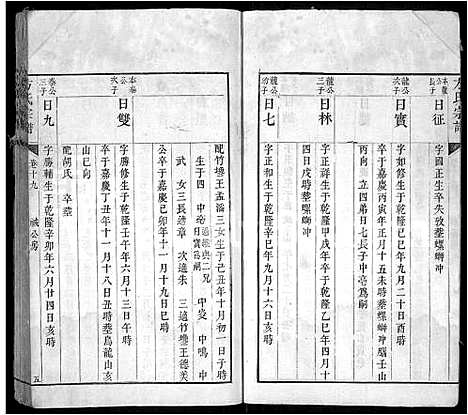 方氏宗譜
龍公
長子
日征
字國正生卒失攷塟螺螄冲
龍公
次子
日賓
字如修生于乾隆
年九月二十日酉時
卒于嘉慶丙寅年正月十五未時塟螺螄冲
壬山
丙向 立四弟日七長子中亳爲嗣
龍公
三子
日林
字正祥生于乾隆甲戌年卒于乾隆乙巳年四月十
四日戌時塟螺螄冲
龍公
四子
日七
字正和生于乾隆辛巳年九月十六日亥時
配竹墩王孟
三女生于己丑年十月初一日子時
公卒于嘉慶
年十一月十九日巳時
生子四 中亳
中
中鳴 中
武 女三長適章 次適朱 三適竹墩王德美
本泰
公
次子
日雙
字勝修生于乾隆壬午年六月十三日午時
卒于嘉慶丁丑年十一月十八日丑時塟烏龍山亥
泰公
三子
日九
字勝輔生于乾隆辛卯年六月廿四日亥時
配胡氏 卒塟
方氏宗譜
卷十九
誠公房
五